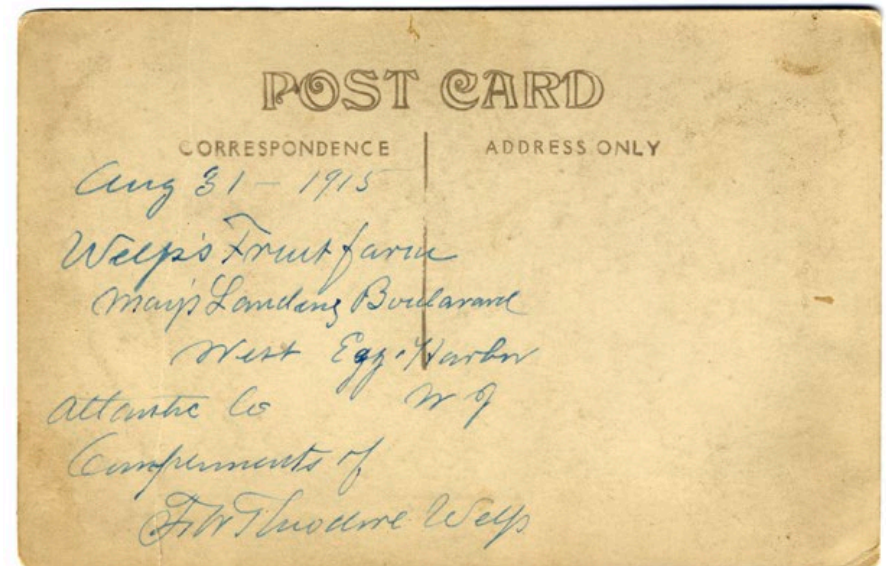 POST CARD
CORRESPONDENCE
ADDRESS ONLY
Aug 31 - 1915
Welp's Fruit farm
May's Landing Boularard
West Egg Harbor
Atlantic Co N J
Compermants of
Theodore Welp